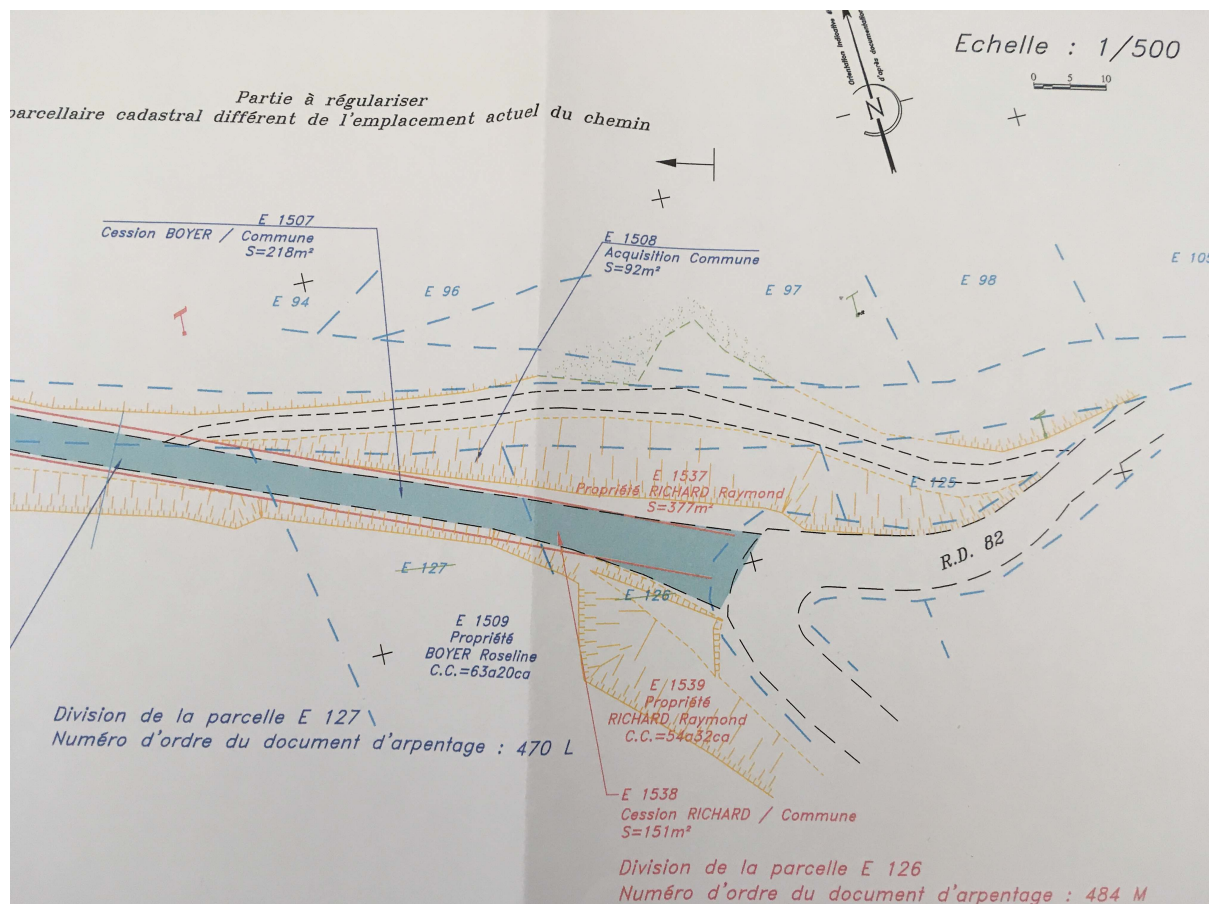 Orientation indicative d'après documentation
Echelle : 1/500
0 5 10
N
Partie à régulariser
parcellaire cadastral différent de l'emplacement actuel du chemin
E 1507
Cession BOYER / Commune
S=218m²
E 1508
Acquisition Commune
S=92m²
E 94
E 96
E 97
E 98
E 105
E 1537
Propriété RICHARD Raymond
S=377m²
E 125
R.D. 82
E 127
E 126
E 1509
Propriété
BOYER Roseline
C.C.=63a20ca
E 1539
Propriété
RICHARD Raymond
C.C.=54a32ca
Division de la parcelle E 127
Numéro d'ordre du document d'arpentage : 470 L
E 1538
Cession RICHARD / Commune
S=151m²
Division de la parcelle E 126
Numéro d'ordre du document d'arpentage : 484 M